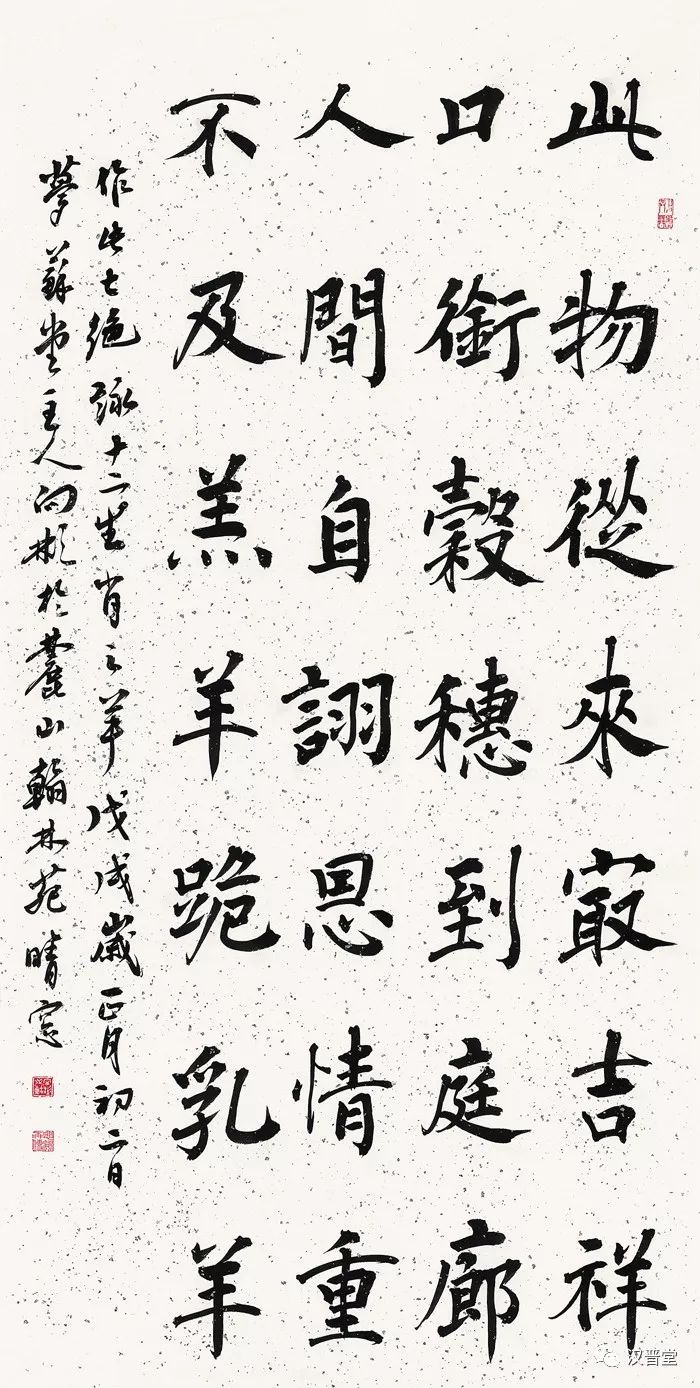 此物從來㝡吉祥
口銜穀穗到庭廊
人間自詡恩情重
不及羔羊跪乳羊
作此七絕詠十二生肖之羊戊戌歲正月初二日
夢蘇堂主人向彬於麓山翰林苑晴窓
汉晋堂